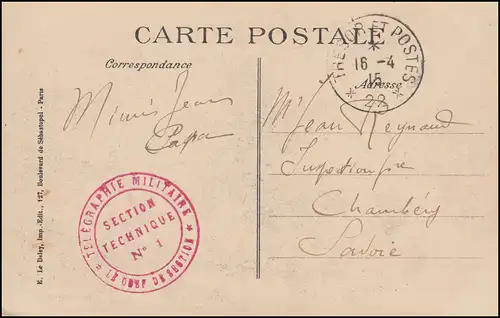 CARTE POSTALE
Correspondance
Adresse
TRESOR ET POSTES
16 -4
15
* 22 *
Mimis Jean
Papa
Mr Jean Reynaud
Inspection fre
Chambéry
Savoie
TÉLÉGRAPHIE MILITAIRE
SECTION
TECHNIQUE
N° 1
E. Le Deley, Imp.-Edit., 127, Boulevard de Sébastopol - Paris